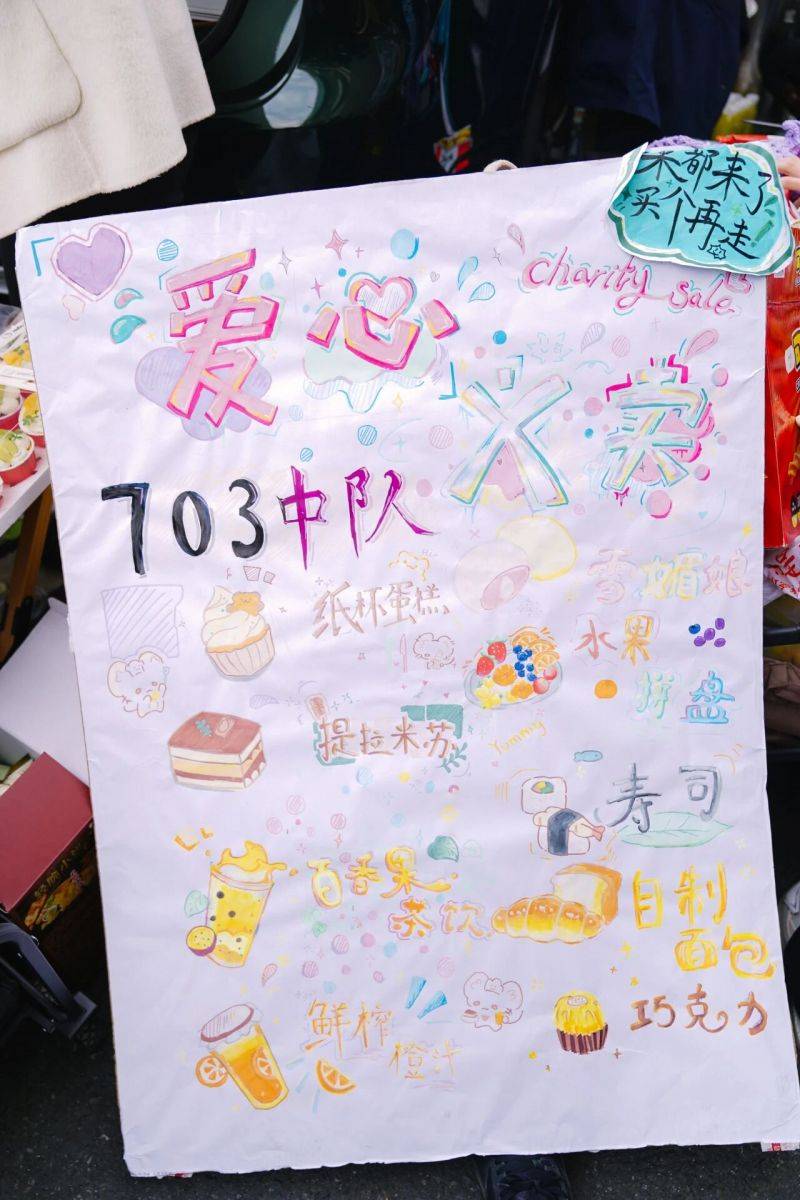 来都来了
买个再走
charity
sale
爱心
义卖
703中队
纸杯蛋糕
雪媚娘
水果
拼盘
提拉米苏
Yummy
寿司
百香果
茶饮
自制
面包
鲜榨
橙汁
巧克力